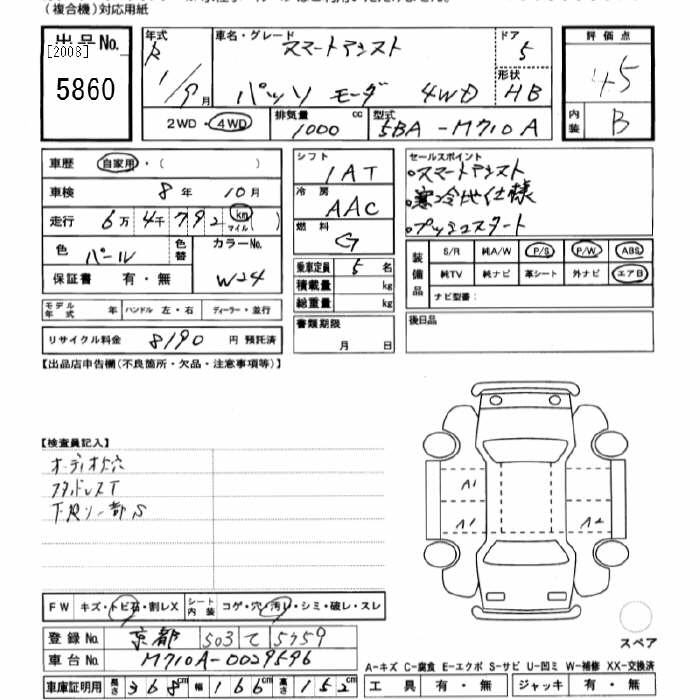 （複合機）対応用紙
出品No. [2008]
5860
年式 R 1/9月
車名・グレード スマートアシスト
パッソ モーダ 4WD
ドア 5
形状 HB
評価点 4.5
内装 B
2WD・4WD
排気量 1000 cc
型式 5BA-M710A
車歴 自家用・( )
車検 8年 10月
走行 6万4千792 km マイル ( )
色 パール 色替
カラーNo. W24
保証書 有・無
モデル年式 年 ハンドル 左・右 ディーラー・並行
リサイクル料金 8190 円 預託済
シフト IAT
冷房 AAC
燃料 G
乗車定員 5 名
積載量 kg
総重量 kg
書類期限
月 日
セールスポイント
・スマートアシスト
・寒冷地仕様
・プッシュスタート
装備品 S/R 純A/W P/S P/W ABS
純TV 純ナビ 革シート 外ナビ エアB
ナビ型番：
後日品
【出品店申告欄（不良箇所・欠品・注意事項等）】
【検査員記入】
オーディオ穴
スタッドレスT
下廻り一部S
A1
A1
A2
FW キズ・トビ石・割レX
シート内装 コゲ・穴・汚レ・シミ・破レ・スレ
登録No. 京都 503 て 5759
車台No. M710A-0029596
車庫証明用 長さ 368cm 幅 166cm 高さ 152cm
スペア
A-キズ C-腐食 E-エクボ S-サビ U-凹ミ W-補修 XX-交換済
工具 有・無 ジャッキ 有・無